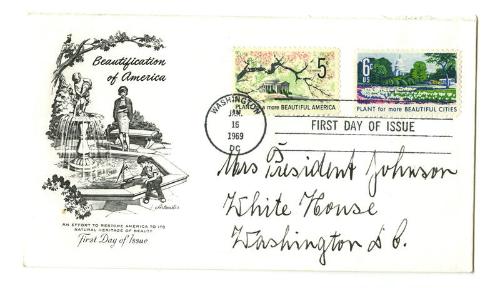 Beautification
of America
5
PLANT for more BEAUTIFUL AMERICA
6
US
PLANT for more BEAUTIFUL CITIES
WASHINGTON
JAN.
16
1969
DC
FIRST DAY OF ISSUE
Mrs President Johnson
White House
Washington D C.
Artmaster
AN EFFORT TO RESTORE AMERICA TO ITS
NATURAL HERITAGE OF BEAUTY
First Day of Issue